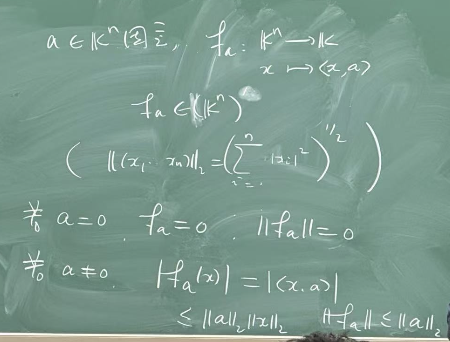 a ∈ 𝕂ⁿ 固定, fₐ: 𝕂ⁿ → 𝕂
x ↦ ⟨x, a⟩
fₐ ∈ (𝕂ⁿ)
( ‖(x₁ … xₙ)‖₂ = (∑ⁿᵢ₌ |xᵢ|²)^{1/2} )
若 a = 0. fₐ = 0. ‖fₐ‖ = 0
若 a ≠ 0. |fₐ(x)| = |⟨x, a⟩|
≤ ‖a‖₂ ‖x‖₂ ‖fₐ‖ ≤ ‖a‖₂